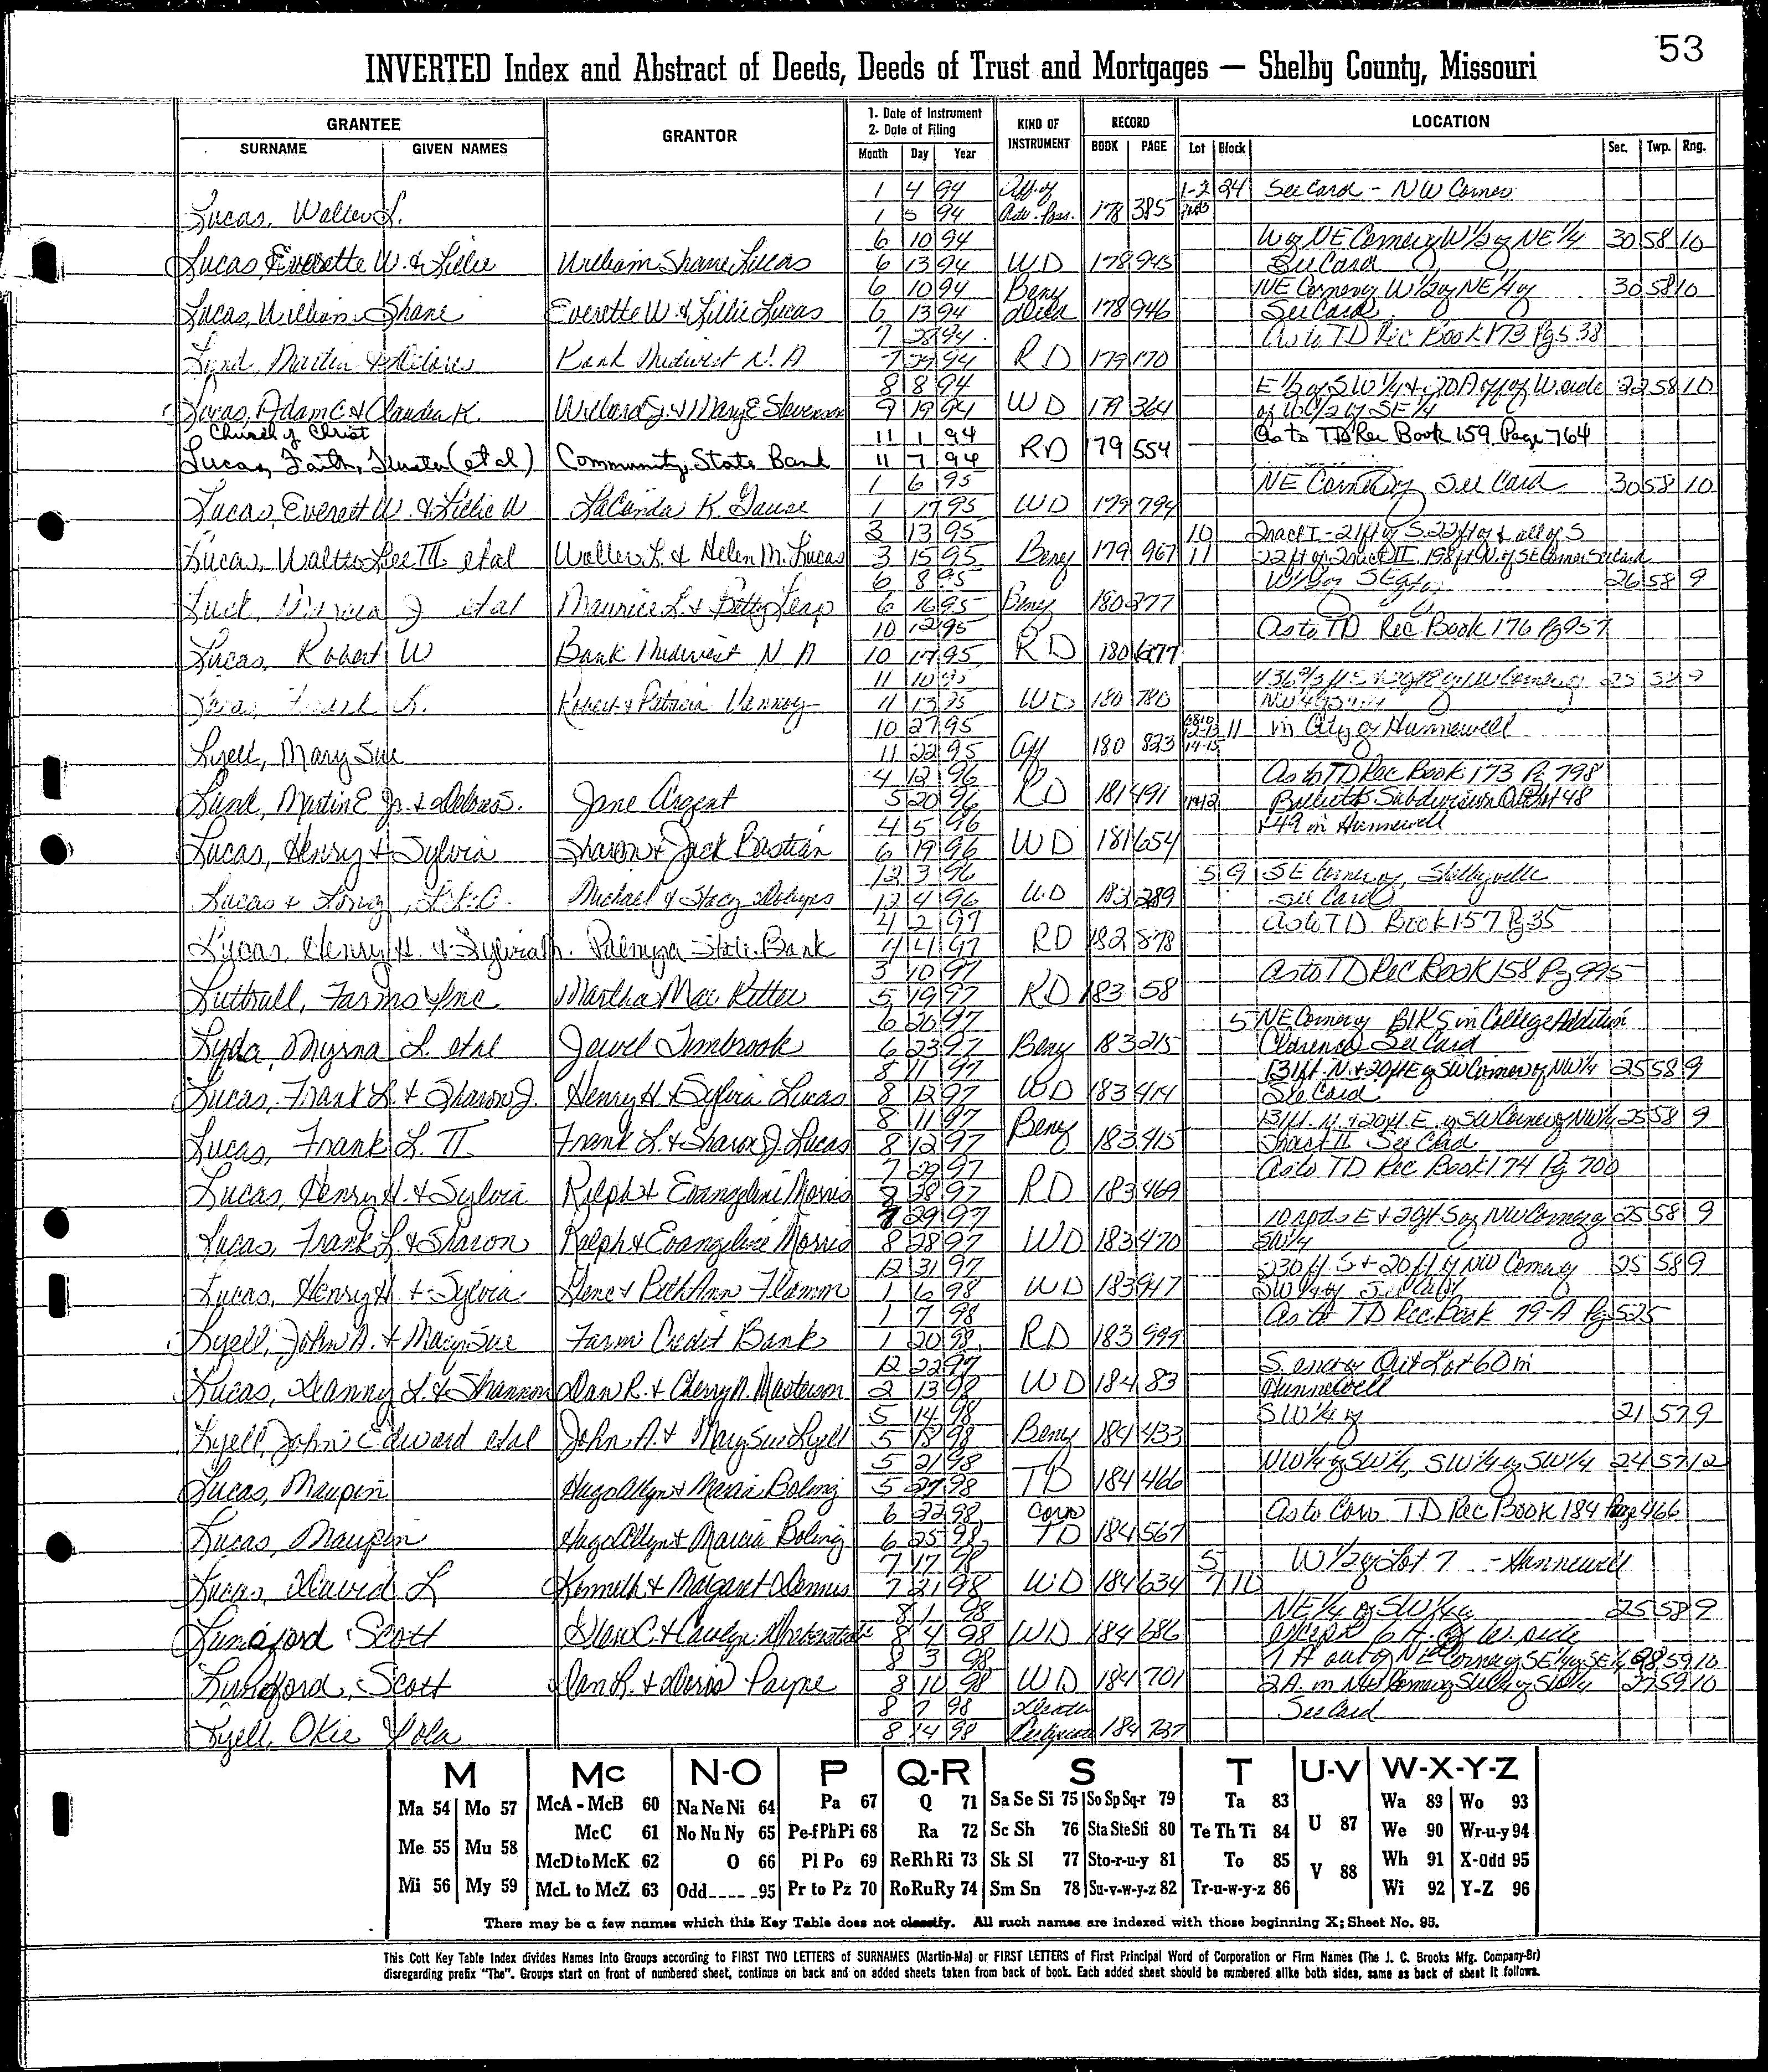 53
INVERTED Index and Abstract of Deeds, Deeds of Trust and Mortgages — Shelby County, Missouri
GRANTEE GRANTOR 1. Date of Instrument 2. Date of Filing KIND OF INSTRUMENT RECORD LOCATION
SURNAME GIVEN NAMES Month Day Year BOOK PAGE Lot Block Sec. Twp. Rng.
1 4 94 Aff. of 1-2 24 See Card - NW Corner
Lucas, Walter L. 1 5 94 Adv. Poss. 178 385
6 10 94 W of NE Corner of W 1/2 of NE 1/4 30 58 10
Lucas, Everette W. & Lillie William Shane Lucas 6 13 94 WD 178 945 See Card
6 10 94 Beny NE Corner of W 1/2 of NE 1/4 of 30 58 10
Lucas, William Shane Everette W & Lillie Lucas 6 13 94 Deed 178 946 See Card
7 28 94 As to TD Rec Book 173 Pg 538
Lund, Martin & Delores Bank Midwest N. A 7 29 94 RD 179 170
8 8 94 E 1/2 of SW 1/4 & 20 A off of W. side 22 58 10
Lucas, Adam C. & Claudia K. Willard J. & Mary E Stevenson 9 19 94 WD 179 364 of W 1/2 of SE 1/4
Church of Christ 11 1 94 As to TD Rec Book 159 Page 764
Lucas, Faith, Trustee (et al) Community State Bank 11 7 94 RD 179 554
1 6 95 NE Corner of See Card 30 58 10
Lucas, Everett W. & Lillie W LaCinda K. Gause 1 17 95 WD 179 794
3 13 95 10 Tract I - 21 ft of S. 22 ft of & all of S
Lucas, Walter Lee III et al Walter L. & Helen M. Lucas 3 15 95 Beny 179 967 11 22 ft of Tract II 198 ft N. of SE Corner See Card
6 8 95 26 58 9
Luck, J et al Maurice L. & Betty Leap 6 16 95 Beny 180 277
10 12 95 As to TD Rec Book 176 Pg 957
Lucas, Robert W Bank Midwest N A 10 17 95 RD 180 677
11 10 95 25 58 9
Lucas, Frank L. Robert & Patricia Vannoy 11 13 95 WD 180 780
10 27 95 11 in City of Hunnewell
Lyell, Mary Sue 11 22 95 Aff 180 823 14-15
4 12 96 As to TD Rec Book 173 Pg 798
Lund, Martin E Jr. & Delores S. Jane Argent 5 20 96 RD 181 491 Subdivision 48
4 5 96 & 49 in Hunnewell
Lucas, Henry & Sylvia Sharon & Jack Bastian 6 19 96 WD 181 654
12 3 96 5 9 SE Corner of, Shelbyville
Lucas & Long, L.L.C. Michael & Stacy 12 4 96 WD 182 289 See Card
4 2 97 As to TD Book 157 Pg 35
Lucas, Henry H. & Sylvia Palmyra State Bank 4 4 97 RD 182 878
3 10 97 As to TD Rec Book 158 Pg 995
Luttrull, Farms Inc Martha Mae Ritter 5 19 97 RD 183 58
6 20 97 5 NE Corner of Blk 5 in College Addition
Lyda, Myrna L. et al Jewel Timbrook 6 23 97 Beny 183 215 Clarence See Card
8 11 97 131 ft. N. & 20 ft E of SW Corner of NW 1/4 25 58 9
Lucas, Frank L. & Sharon J. Henry H & Sylvia Lucas 8 12 97 WD 183 414 See Card
8 11 97 131 ft. N. & 20 ft. E. of SW Corner of NW 1/4 25 58 9
Lucas, Frank L. II Frank L. & Sharon J. Lucas 8 12 97 Beny 183 415 Tract II See Card
7 29 97 As to TD Rec Book 174 Pg 700
Lucas, Henry H. & Sylvia Ralph & Evangeline Morris 8 28 97 RD 183 469
7 29 97 10 rods E & 20 ft S of NW Corner of 25 58 9
Lucas, Frank L. & Sharon Ralph & Evangeline Morris 8 28 97 WD 183 470 SW 1/4
12 31 97 230 ft. S & 20 ft of NW Corner of 25 58 9
Lucas, Henry H & Sylvia Gene & Beth Ann Flamm 1 6 98 WD 183 947 SW 1/4 of See Card
1 7 98 As to TD Rec Book 79-A Pg 525
Lyell, John A. & Mary Sue Farm Credit Bank 1 20 98 RD 183 999
12 22 97 S. end of Out Lot 60 in
Lucas, Danny L. & Shannon Dan R. & Cherry A. Masterson 2 13 98 WD 184 83 Hunnewell
5 14 98 SW 1/4 of 21 57 9
Lyell, John Edward et al John A. & Mary Sue Lyell 5 15 98 Beny 184 433
5 21 98 NW 1/4 of SW 1/4, SW 1/4 of SW 1/4 24 57 12
Lucas, Maupin Hugo Allyn & Marcia Boling 5 27 98 TD 184 466
6 22 98 Corr As to Corr TD Rec Book 184 Page 466
Lucas, Maupin Hugo Allyn & Marcia Boling 6 25 98 TD 184 567
7 17 98 5 W 1/2 of Lot 7 - Hunnewell
Lucas, David L Kenneth & Margaret Dennis 7 21 98 WD 184 634 7 10
8 1 98 NE 1/4 of SW 1/4 25 58 9
Lunsford Scott Glen C. & Carolyn 8 4 98 WD 184 686 except 6 ft. off W. side
8 3 98 1 A out of NE Corner of SE 1/4 of SE 1/4 28 59 10
Lunsford, Scott Dan R. & Doris Payne 8 10 98 WD 184 701 2 A. in NW Corner of SW 1/4 of SW 1/4 27 59 10
8 7 98 See Card
Lyell, Okie Lola 8 14 98 184 737
M Mc N-O P Q-R S T U-V W-X-Y-Z
Ma 54 Mo 57 McA - McB 60 Na Ne Ni 64 Pa 67 Q 71 Sa Se Si 75 So Sp Sq-r 79 Ta 83 U 87 Wa 89 Wo 93
Me 55 Mu 58 McC 61 No Nu Ny 65 Pe-f Ph Pi 68 Ra 72 Sc Sh 76 Sta Ste Sti 80 Te Th Ti 84 We 90 Wr-u-y 94
McD to McK 62 O 66 Pl Po 69 Re Rh Ri 73 Sk Sl 77 Sto-r-u-y 81 To 85 V 88 Wh 91 X-Odd 95
Mi 56 My 59 McL to McZ 63 Odd 95 Pr to Pz 70 Ro Ru Ry 74 Sm Sn 78 Su-v-w-y-z 82 Tr-u-w-y-z 86 Wi 92 Y-Z 96
There may be a few names which this Key Table does not classify. All such names are indexed with those beginning X; Sheet No. 95.
This Cott Key Table Index divides Names Into Groups according to FIRST TWO LETTERS of SURNAMES (Martin-Ma) or FIRST LETTERS of First Principal Word of Corporation or Firm Names (The J. C. Brooks Mfg. Company-Br)
disregarding prefix "The". Groups start on front of numbered sheet, continue on back and on added sheets taken from back of book. Each added sheet should be numbered alike both sides, same as back of sheet it follows.